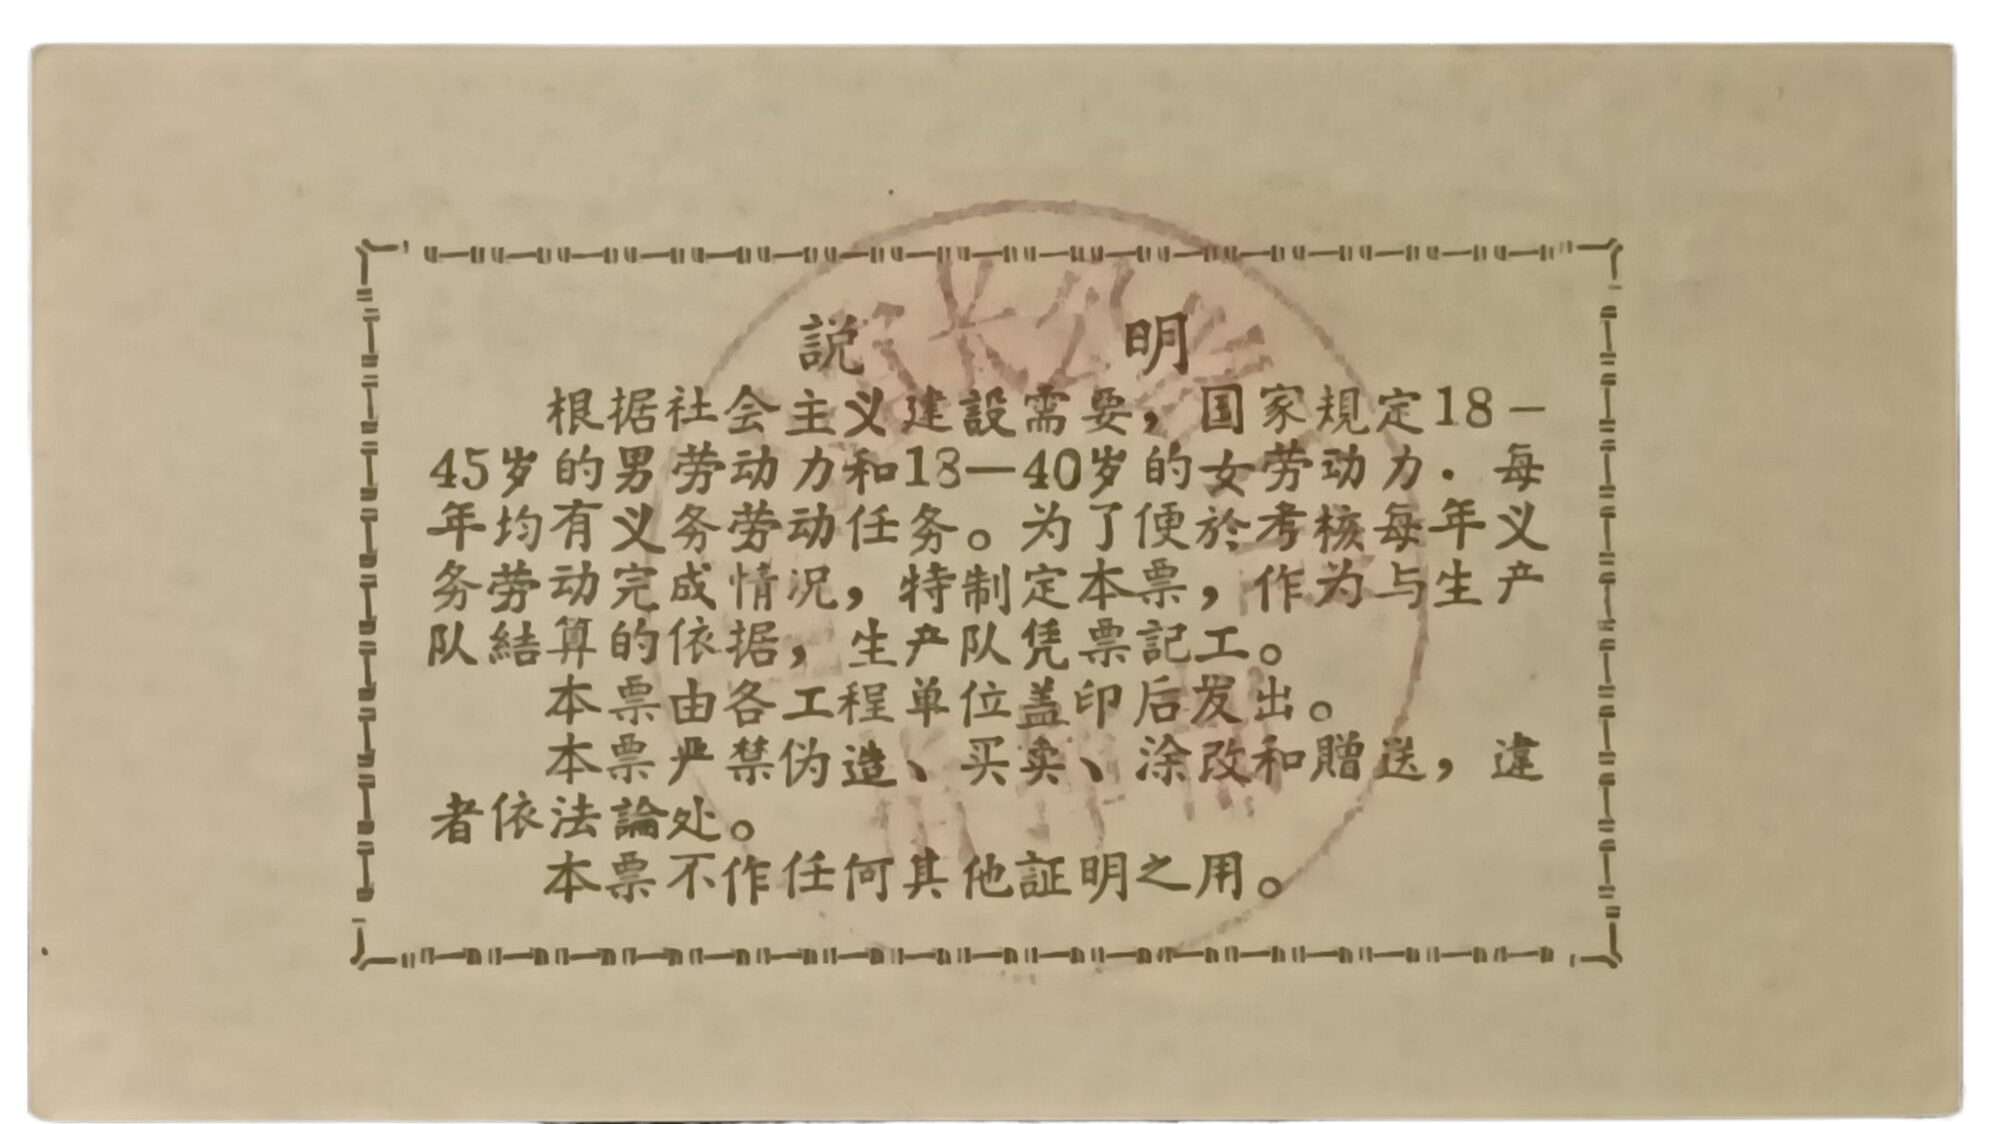 説 明
根据社会主义建設需要，国家規定18—
45岁的男劳动力和18—40岁的女劳动力．每
年均有义务劳动任务。为了便於考核每年义
务劳动完成情况，特制定本票，作为与生产
队結算的依据，生产队凭票記工。
本票由各工程单位盖印后发出。
本票严禁伪造、买卖、涂改和贈送，違
者依法論处。
本票不作任何其他証明之用。